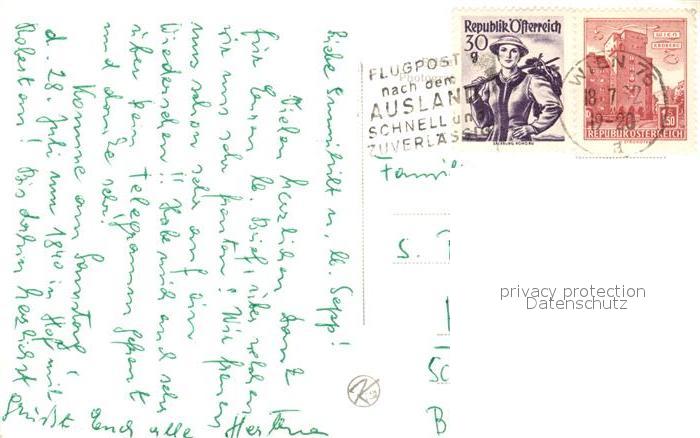 Republik Österreich
30
g
WIEN
REPUBLIK ÖSTERREICH
1.50
WIEN
18. 7.
-20
FLUGPOST
nach dem
AUSLAND
SCHNELL und
ZUVERLÄSSIG
Liebe Sunnihilt u. lb. Sepp!
Vielen herzlichen Dank
für Deinen lb. Brief, über welchen
wir uns sehr freuten! Wir freuen
uns schon sehr auf ein
Wiedersehen!! Habe mich auch sehr
über Dein Telegramm gefreut
und danke sehr!
Komme am Samstag
d. 28. Juli um 1840 in Hof mit
Robert an! Bis dahin herzlichst
grüßt Euch alle
Famil
S.
50
B
privacy protection
Datenschutz